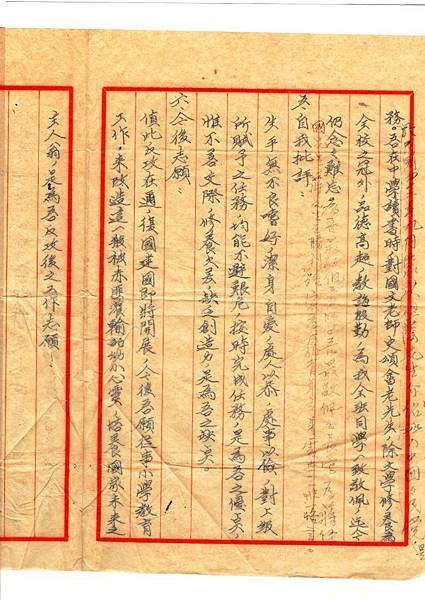 務。吾在中學讀書時對國文老師史頌老先生,除文學修養為
全校之冠外,品德高超,教誨殷勤,為我全班同學一致敬佩,迄今
仍念念難忘
五、自我批評:
生平無不良嗜好,潔身自愛,處人以恭,處事以儉,對上級
所賦予之任務,均能不避艱危,按時完成任務,是為吾之優點,
惟不善交際,修養欠差,缺乏創造力,是為吾之缺點。
六、今後志願:
值此反攻在邇,復國建國即將開展,今後吾願從事小學教育
工作,來改造這一般被赤匪灌輸的幼小心靈,培養國家未來之
主人翁,是為吾反攻後之工作志願!